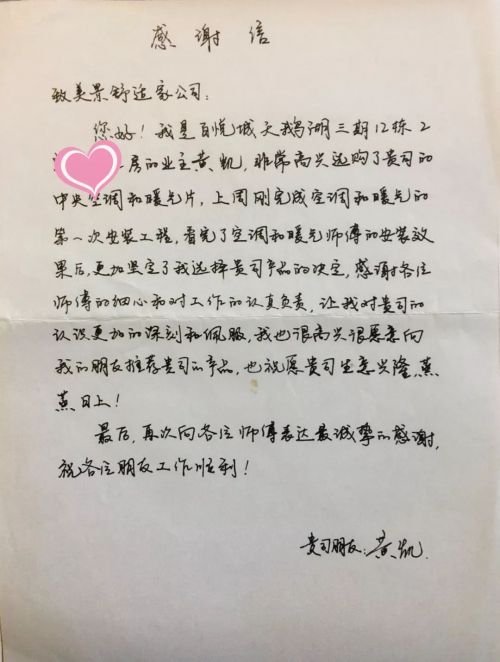 感谢信
致美景舒适家公司：
您好！我是百悦城天鹅湖三期12栋2
房的业主黄凯，非常高兴选购了贵司的
中央空调和暖气片，上周刚完成空调和暖气的
第一次安装工程，看完了空调和暖气师傅的安装效
果后，更加坚定了我选择贵司产品的决定，感谢各位
师傅的细心和对工作的认真负责，让我对贵司的
认识更加的深刻和佩服，我也很高兴很愿意向
我的朋友推荐贵司的产品，也祝愿贵司生意兴隆，蒸
蒸日上！
最后，再次向各位师傅表达最诚挚的感谢，
祝各位朋友工作顺利！
贵司朋友：黄凯